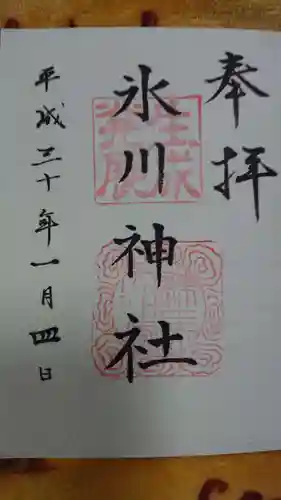 奉拝
氷川神社
平成三十年一月四日